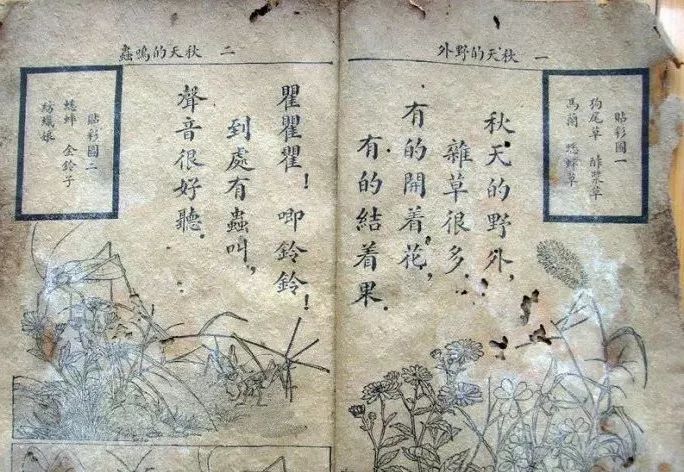 一 秋天的野外
貼彩圖一
狗尾草 酢漿草
馬蘭 蟋蟀草
秋天的野外,
雜草很多.
有的開着花,
有的結着果.
二 秋天的鳴蟲
瞿瞿瞿!唧鈴鈴!
到處有蟲叫,
聲音很好聽.
貼彩圖二
蟋蟀 金鈴子
紡織娘